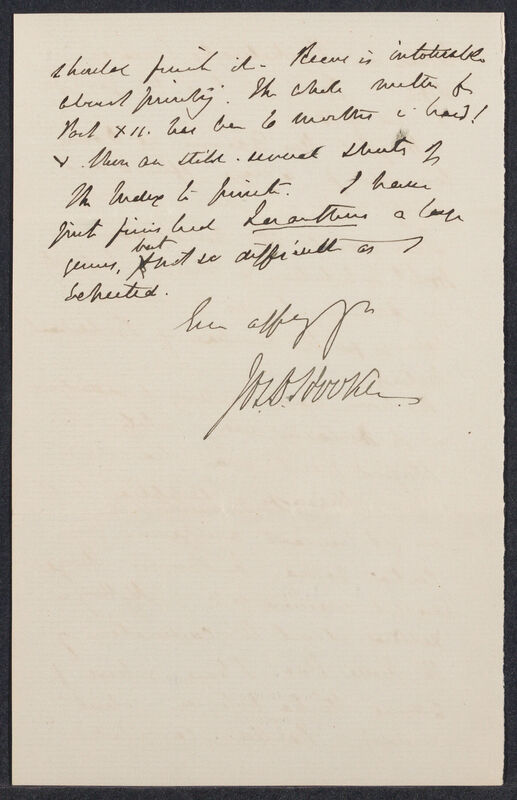 should finish it. Reeve is intolerable
about printing. The whole matter for
Part XII. has been 6 months in hand!
& there are still several sheets of
the Index to print. I have
just finished Loranthus a large
genus, but not so difficult as I
expected.
Ever affy yrs
Jos. D. Hooker